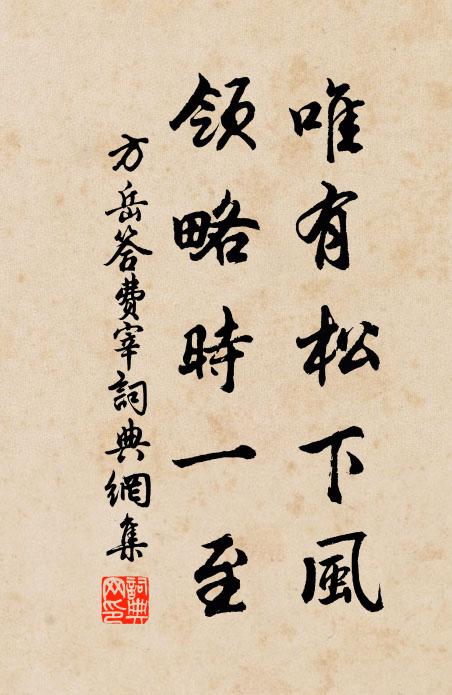 唯有松下風
領略時一至
方岳答費宰詞典網集
詞典網印